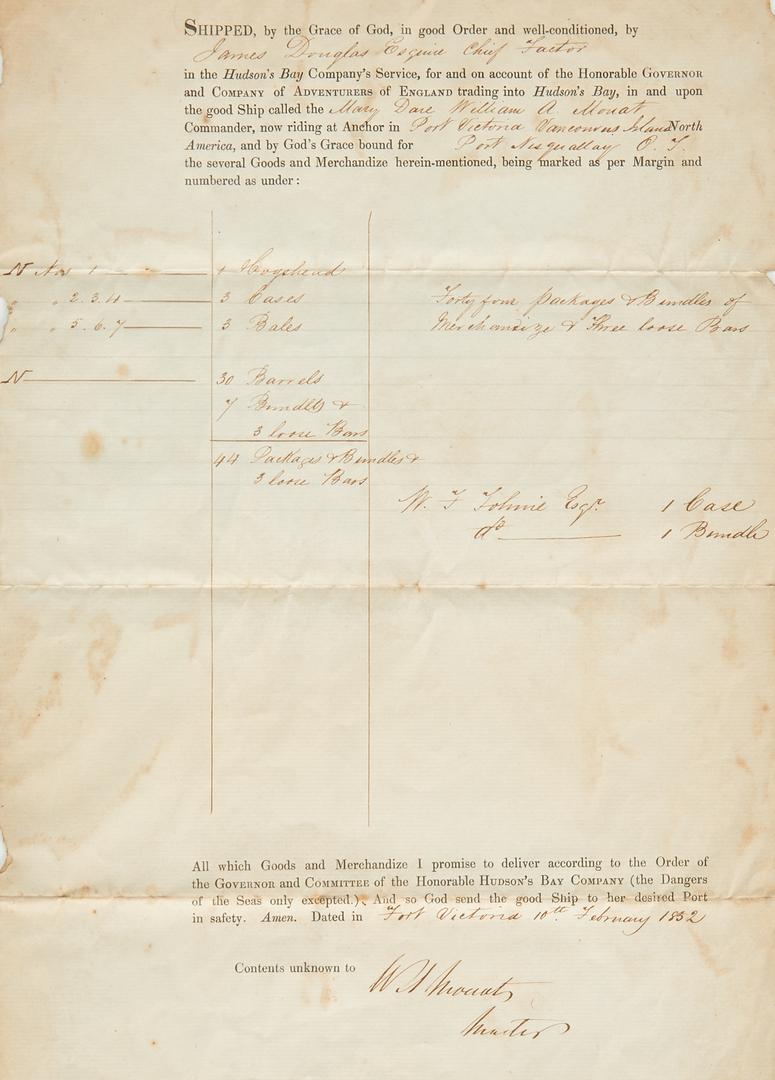 SHIPPED, by the Grace of God, in good Order and well-conditioned, by
James Douglas Esquire Chief Factor
in the Hudson's Bay Company's Service, for and on account of the Honorable GOVERNOR
and COMPANY of ADVENTURERS of ENGLAND trading into Hudson's Bay, in and upon
the good Ship called the Mary Dare William A. Mouat
Commander, now riding at Anchor in Port Victoria Vancouvers Island North
America, and by God's Grace bound for Port Nisquallay O. T.
the several Goods and Merchandize herein-mentioned, being marked as per Margin and
numbered as under:
N Nos 1 — 1 Hogshead
" " 2. 3. 4 — 3 Cases
" " 5. 6. 7 — 3 Bales
N — 30 Barrels
7 Bundles &
3 loose Bars
44 Packages & Bundles &
3 loose Bars
Forty four packages & Bundles of
Merchandize & Three loose Bars
W. F Tolmie Esqr. 1 Case
do — 1 Bundle
All which Goods and Merchandize I promise to deliver according to the Order of
the GOVERNOR and COMMITTEE of the Honorable HUDSON'S BAY COMPANY (the Dangers
of the Seas only excepted.) And so God send the good Ship to her desired Port
in safety. Amen. Dated in Fort Victoria 10th February 1852
Contents unknown to W A Mouat
Master